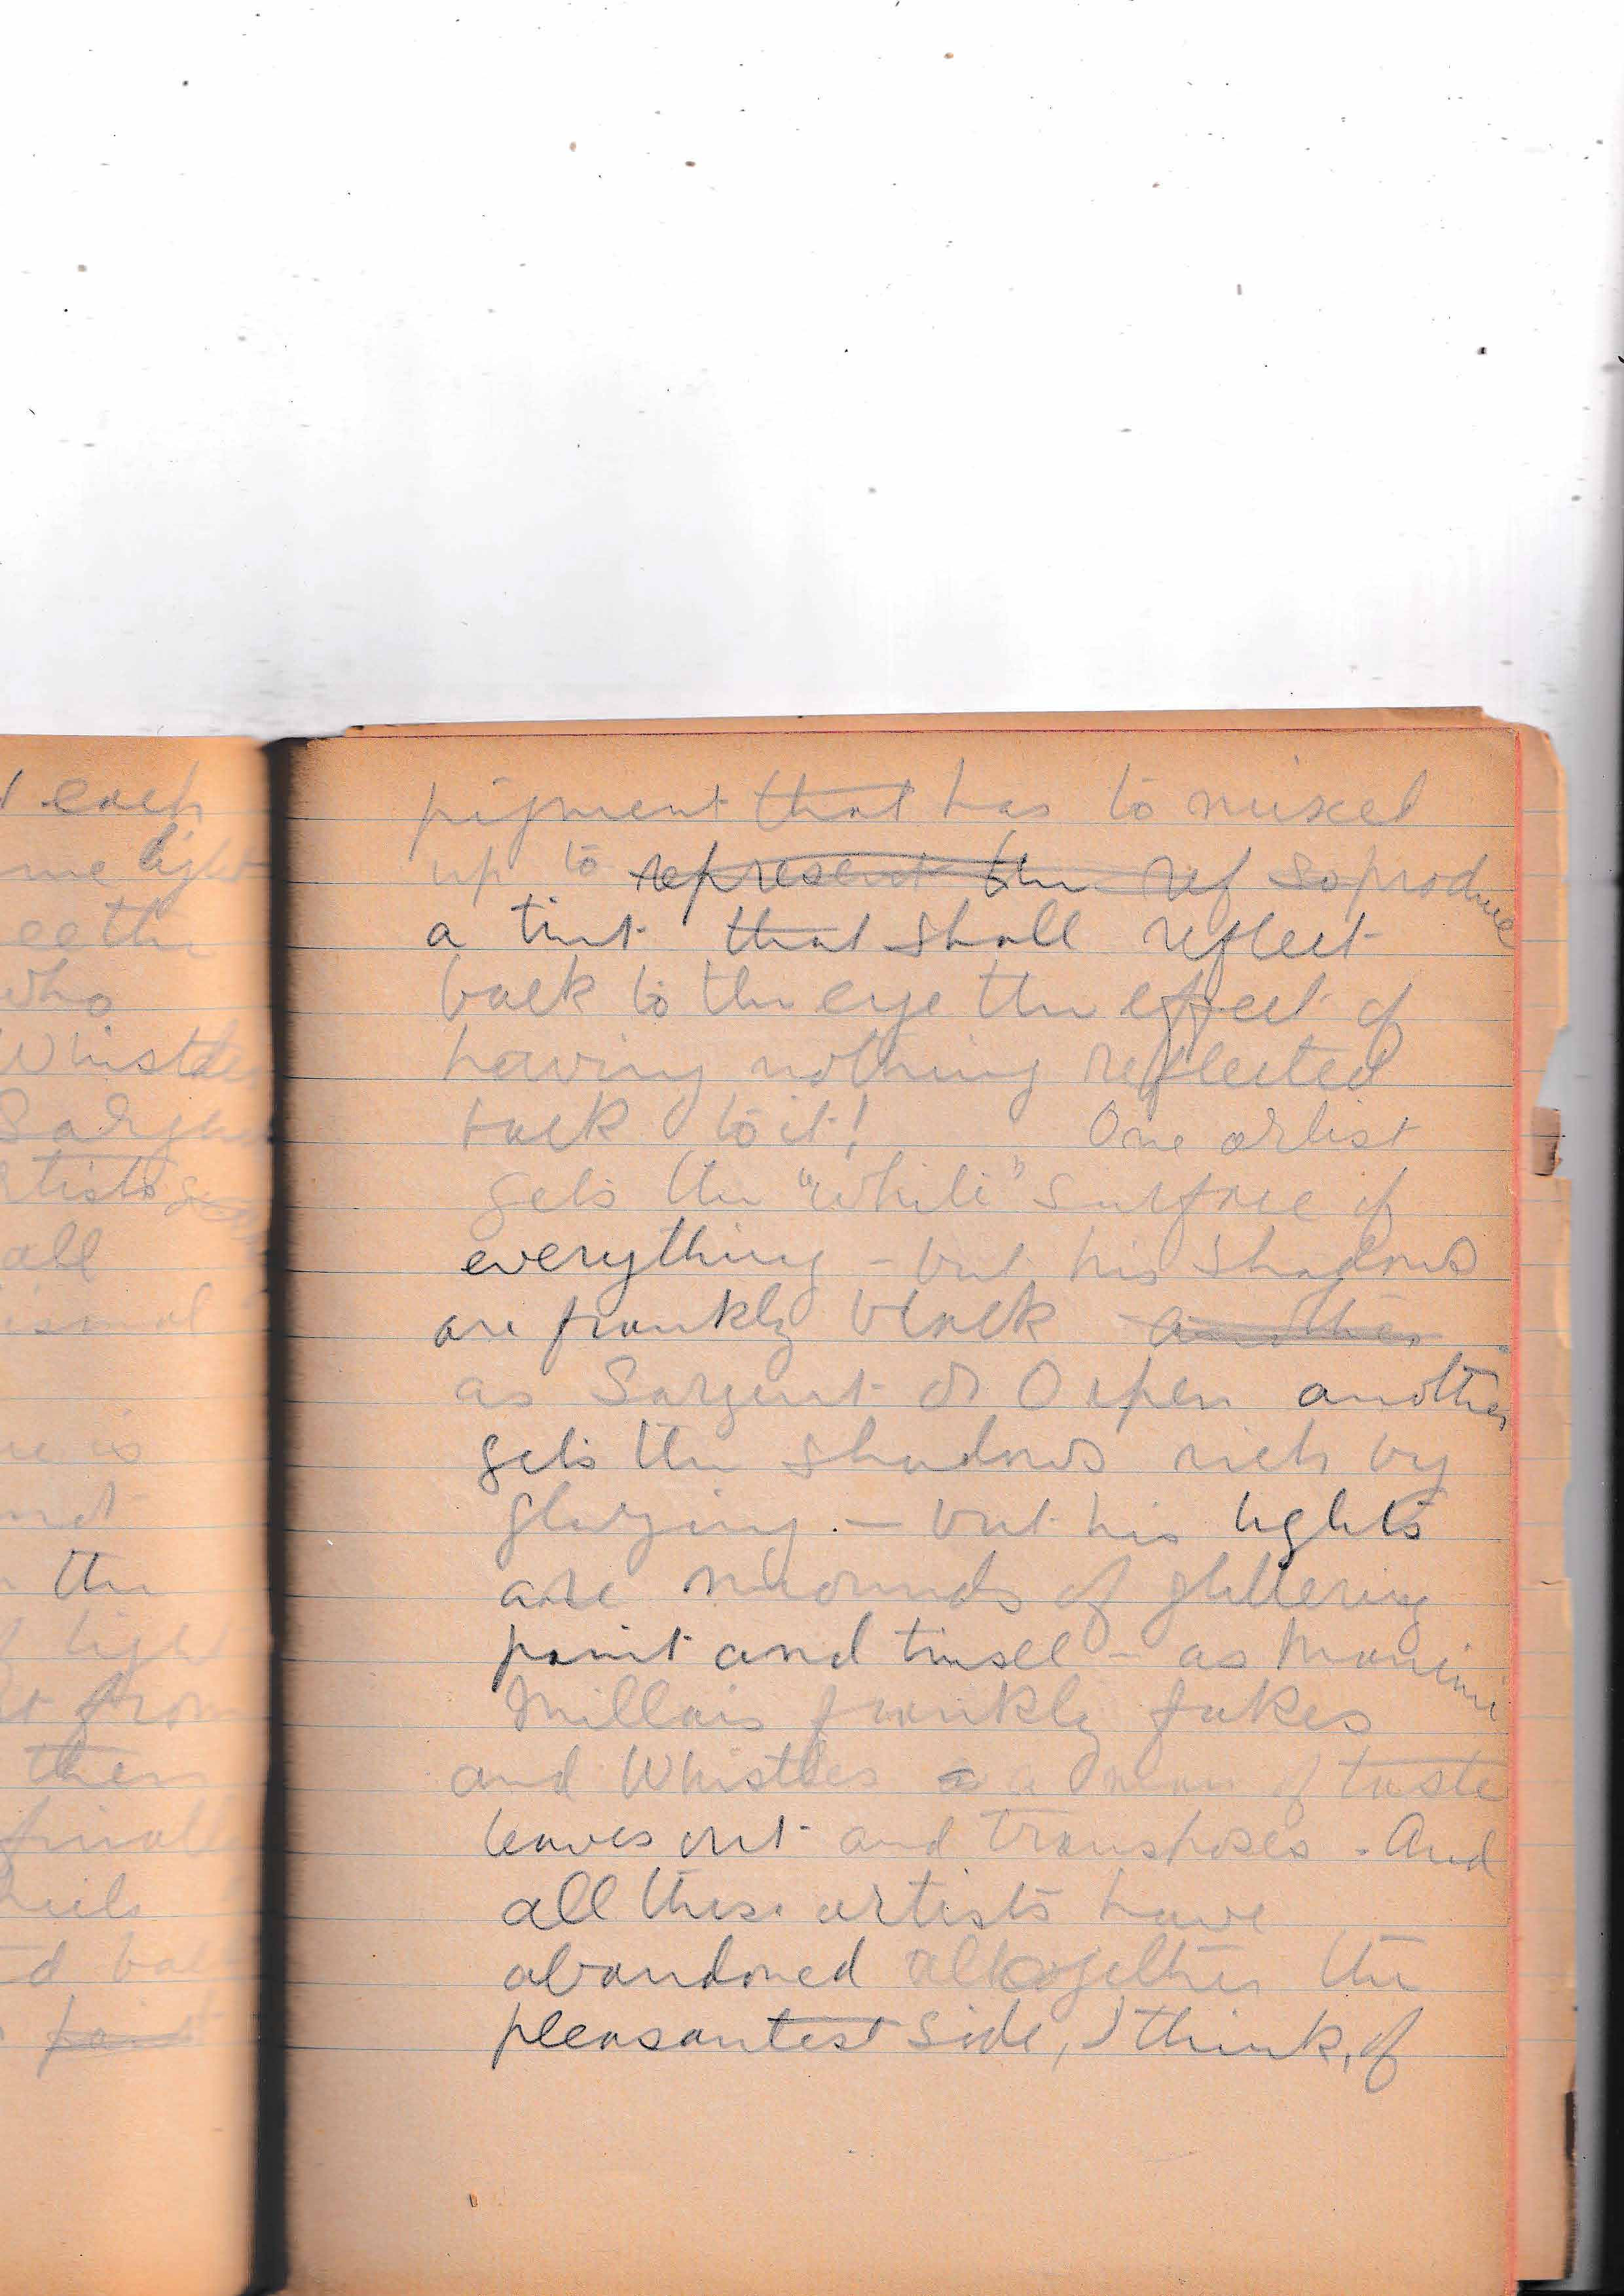 d each
me light
ee the
who
Whistler
Sargent
rtists
all
ismal
ue is
not
n the
light
from
them
finall
d bal
paint
pigment that has to mixed
up to represent the ref so produce
a tint that shall reflect
back to the eye the effect of
having nothing reflected
back to it! One artist
gets the "white" surface of
everything - but his shadows
are frankly black another
as Sargent or Orpen another
gets the shadows rich by
glazing. - but his lights
are mounds of glittering
paint and tinsel - as Mancini
Millais frankly fakes
and Whistler a man of taste
leaves out and transposes. And
all these artists have
abandoned altogether the
pleasantest side, I think, of